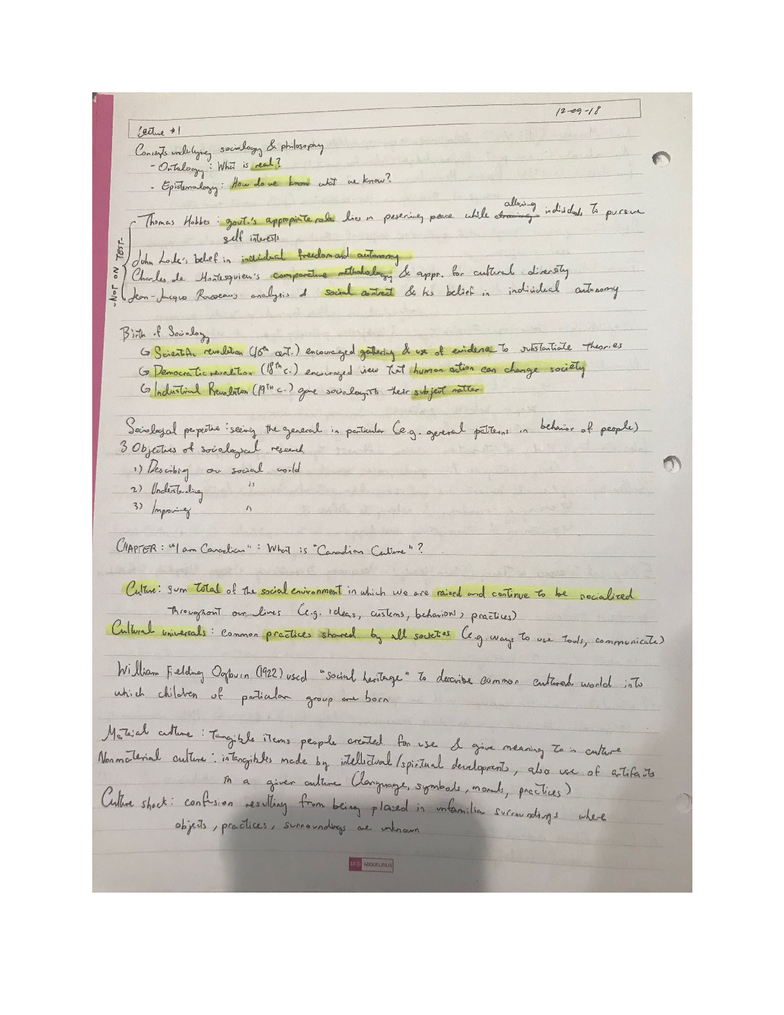 12-09-18
Lecture #1
Concepts underlying sociology & philosophy
- Ontology: What is real?
- Epistemology: How do we know what we know?
- NOT ON TEST -
Thomas Hobbes: govt.'s appropriate role lies in preserving peace while allowing individuals to pursue
self interests
John Locke's belief in individual freedom and autonomy
Charles de Montesquieu's comparative methodology & appr. for cultural diversity
Jean-Jacques Rousseau's analysis of social contract & his belief in individual autonomy
Birth of Sociology
↳ Scientific revolution (16th cent.) encouraged gathering & use of evidence to substantiate theories
↳ Democratic revolution (18th c.) encouraged view that human action can change society
↳ Industrial Revolution (19th c.) gave sociologists their subject matter
Sociological perspective: seeing the general in particular (e.g. general patterns in behavior of people)
3 Objectives of sociological research
1) Describing our social world
2) Understanding "
3) Improving "
CHAPTER: "I am Canadian": What is "Canadian Culture"?
Culture: sum total of the social environment in which we are raised and continue to be socialized
throughout our lives (e.g. ideas, customs, behaviors, practices)
Cultural universals: common practices shared by all societies (e.g. ways to use tools, communicate)
William Fielding Ogburn (1922) used "social heritage" to describe common cultural world into
which children of particular group are born
Material culture: tangible items people created for use & give meaning to in culture
Nonmaterial culture: intangibles made by intellectual/spiritual development, also use of artifacts
in a given culture (language, symbols, morals, practices)
Culture shock: confusion resulting from being placed in unfamiliar surroundings where
objects, practices, surroundings are unknown